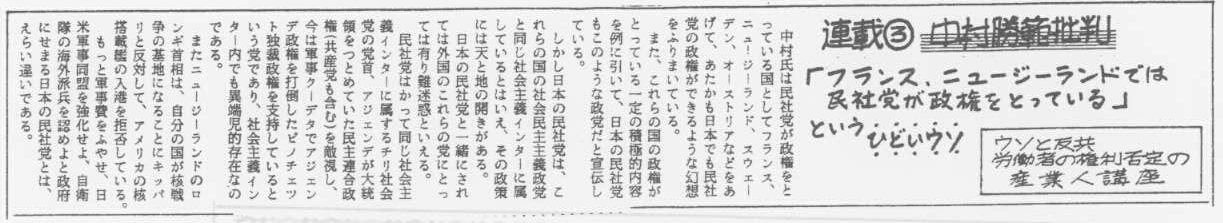 連載③ 中村勝範批判
「フランス、ニュージーランドでは
民社党が政権をとっている」
という ひどいウソ
ウソと反共
労働者の権利否定の
産業人講座
中村氏は民社党が政権をと
っている国としてフランス、
ニュージーランド、スウェー
デン、オーストリアなどをあ
げて、あたかも日本でも民社
党の政権ができるような幻想
をふりまいている。
また、これらの国の政権が
とっている一定の積極的内容
を例に引いて、日本の民社党
もこのような政党だと宣伝し
ている。
しかし日本の民社党は、こ
れらの国の社会民主主義政党
と同じ社会主義インターに属
しているとはいえ、その政策
には天と地の開きがある。
日本の民社党と一緒にされ
ては外国のこれらの党にとっ
ては有り難迷惑といえる。
民社党はかつて同じ社会主
義インターに属するチリ社会
党の党首、アジェンデが大統
領をつとめていた民主連合政
権(共産党も含む)を敵視し、
今は軍事クーデタでアジェン
デ政権を打倒したピノチェッ
ト独裁政権を支持していると
いう党であり、社会主義イン
ター内でも異端児的存在なの
である。
またニュージーランドのロ
ンギ首相は、自分の国が核戦
争の基地になることにキッパ
リと反対して、アメリカの核
搭載艦の入港を拒否している。
もっと軍事費をふやせ、日
米軍事同盟を強化せよ、自衛
隊の海外派兵を認めよと政府
にせまる日本の民社党とは、
えらい違いである。